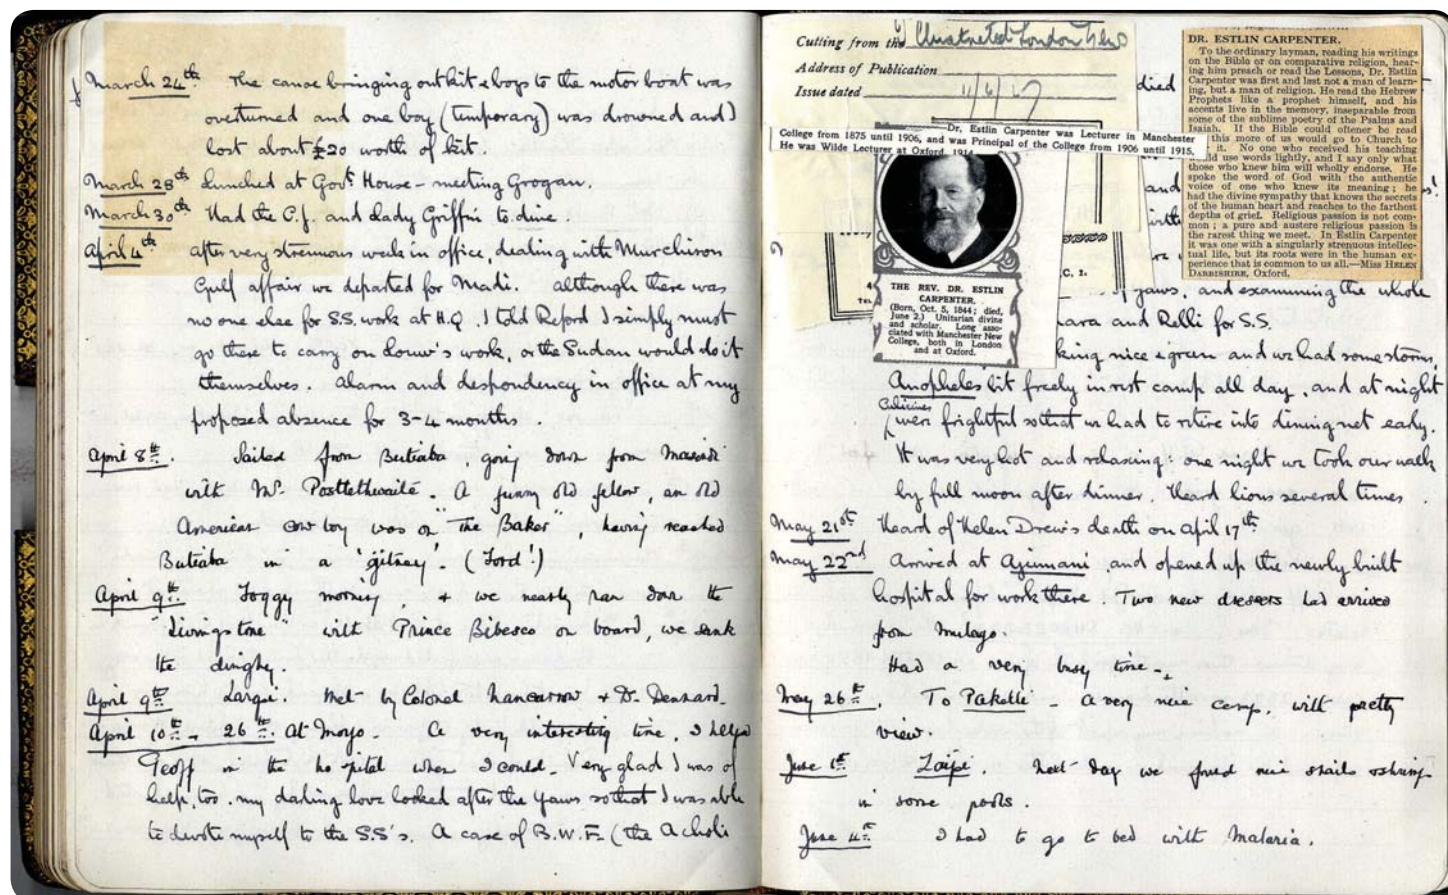 March 24th. The canoe bringing out kit & boys to the motor boat was
overturned and one boy (temporary) was drowned and I
lost about £20 worth of kit.
March 28th Lunched at Govt. House - meeting Grogan.
March 30th Had the C.J. and Lady Griffin to dine.
April 4th after very strenuous week in office, dealing with Murchison
Gulf affair we departed for Madi. Although there was
no one else for S.S. work at H.Q. I told Reford I simply must
go there to carry on Louw's work, or the Sudan would do it
themselves. Alarm and despondency in office at my
proposed absence for 3-4 months.
April 8th. Sailed from Butiaba, going down from Masindi
with Mr. Postlethwaite. A funny old fellow, an old
American cow boy was on "The Baker", having reached
Butiaba in a 'gitney'. (Ford!)
April 9th Foggy morning, & we nearly ran down the
"Livingstone" with Prince Bibesco on board, we sank
the dinghy.
April 9th Laropi. Met by Colonel Nancarrow & Dr. Dennard.
April 10th - 26th. At Moyo. A very interesting time, I helped
Geoff in the hospital when I could. Very glad I was of
help, too. my darling love looked after the yaws so that I was able
to devote myself to the S.S's. A case of B.W.F. (the Acholi
Cutting from the Illustrated London News
Address of Publication
Issue dated 11/6/27
College from 1875 until 1906, and was Principal of the College from 1906 until 1915.
Dr. Estlin Carpenter was Lecturer in Manchester
He was Wilde Lecturer at Oxford, 1914
THE REV. DR. ESTLIN
CARPENTER.
(Born, Oct. 5, 1844; died,
June 2.) Unitarian divine
and scholar. Long asso-
ciated with Manchester New
College, both in London
and at Oxford.
C. 2.
DR. ESTLIN CARPENTER.
To the ordinary layman, reading his writings
on the Bible or on comparative religion, hear-
ing him preach or read the Lessons, Dr. Estlin
Carpenter was first and last not a man of learn-
ing, but a man of religion. He read the Hebrew
Prophets like a prophet himself, and his
accents live in the memory, inseparable from
some of the sublime poetry of the Psalms and
Isaiah. If the Bible could oftener be read
this more of us would go to Church to
it. No one who received his teaching
use words lightly, and I say only what
those who knew him will wholly endorse. He
spoke the word of God with the authentic
voice of one who knew its meaning; he
had the divine sympathy that knows the secrets
of the human heart and reaches to the farthest
depths of grief. Religious passion is not com-
mon; a pure and austere religious passion is
the rarest thing we meet. In Estlin Carpenter
it was one with a singularly strenuous intellec-
tual life, but its roots were in the human ex-
perience that is common to us all.—Miss HELEN
DARBISHIRE, Oxford.
died
and
of yaws, and examining the whole
and Relli for S.S.
king nice & green and we had some storms.
Anopheles bit freely in rest camp all day, and at night
Culicines
were frightful so that we had to retire into dining net early.
It was very hot and relaxing: one night we took our walk
by full moon after dinner. Heard lions several times.
May 21st Heard of Helen Drew's death on April 17th.
May 22nd Arrived at Adjumani and opened up the newly built
hospital for work there. Two new dressers had arrived
from Mulago.
Had a very busy time.
May 26th. To Pakelle - A very nice camp, with pretty
view.
June 1st Zoipi. Next day we found nice snails & shrimps
in some pools.
June 4th I had to go to bed with Malaria.